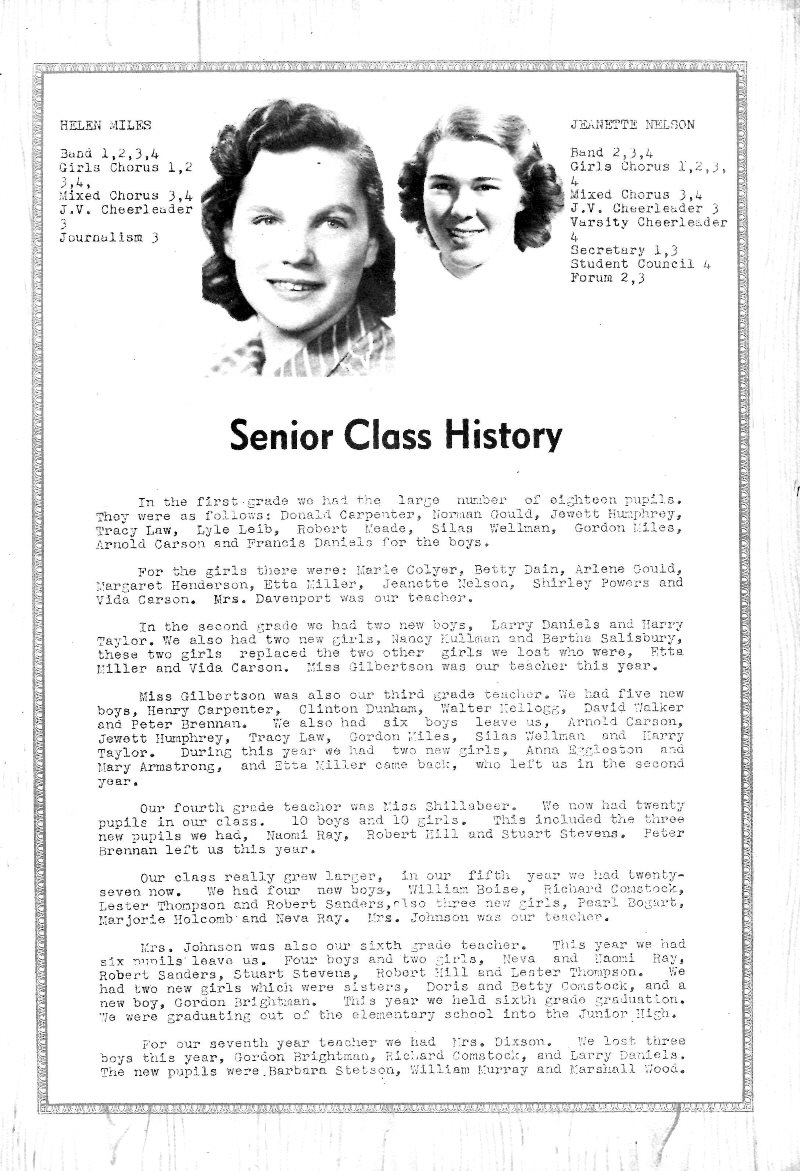 HELEN MILES
Band 1,2,3,4
Girls Chorus 1,2
3,4,
Mixed Chorus 3,4
J.V. Cheerleader
3
Journalism 3
JEANETTE NELSON
Band 2,3,4
Girls Chorus 1,2,3,
4
Mixed Chorus 3,4
J.V. Cheerleader 3
Varsity Cheerleader
4
Secretary 1,3
Student Council 4
Forum 2,3
Senior Class History
In the first grade we had the large number of eighteen pupils.
They were as follows: Donald Carpenter, Norman Gould, Jewett Humphrey,
Tracy Law, Lyle Leib, Robert Meade, Silas Wellman, Gordon Miles,
Arnold Carson and Francis Daniels for the boys.
For the girls there were: Marie Colyer, Betty Dain, Arlene Gould,
Margaret Henderson, Etta Miller, Jeanette Nelson, Shirley Powers and
Vida Carson. Mrs. Davenport was our teacher.
In the second grade we had two new boys, Larry Daniels and Harry
Taylor. We also had two new girls, Nancy Kullman and Bertha Salisbury,
these two girls replaced the two other girls we lost who were, Etta
Miller and Vida Carson. Miss Gilbertson was our teacher this year.
Miss Gilbertson was also our third grade teacher. We had five new
boys, Henry Carpenter, Clinton Dunham, Walter Kellogg, David Walker
and Peter Brennan. We also had six boys leave us, Arnold Carson,
Jewett Humphrey, Tracy Law, Gordon Miles, Silas Wellman and Harry
Taylor. During this year we had two new girls, Anna Eggleston and
Mary Armstrong, and Etta Miller came back, who left us in the second
year.
Our fourth grade teacher was Miss Shillabeer. We now had twenty
pupils in our class. 10 boys and 10 girls. This included the three
new pupils we had, Naomi Ray, Robert Hill and Stuart Stevens. Peter
Brennan left us this year.
Our class really grew larger, in our fifth year we had twenty-
seven now. We had four new boys, William Boise, Richard Comstock,
Lester Thompson and Robert Sanders, also three new girls, Pearl Bogart,
Marjorie Holcomb and Neva Ray. Mrs. Johnson was our teacher.
Mrs. Johnson was also our sixth grade teacher. This year we had
six pupils leave us. Four boys and two girls, Neva and Naomi Ray,
Robert Sanders, Stuart Stevens, Robert Hill and Lester Thompson. We
had two new girls which were sisters, Doris and Betty Comstock, and a
new boy, Gordon Brightman. This year we held sixth grade graduation.
We were graduating out of the elementary school into the Junior High.
For our seventh year teacher we had Mrs. Dixson. We lost three
boys this year, Gordon Brightman, Richard Comstock, and Larry Daniels.
The new pupils were Barbara Stetson, William Murray and Marshall Wood.